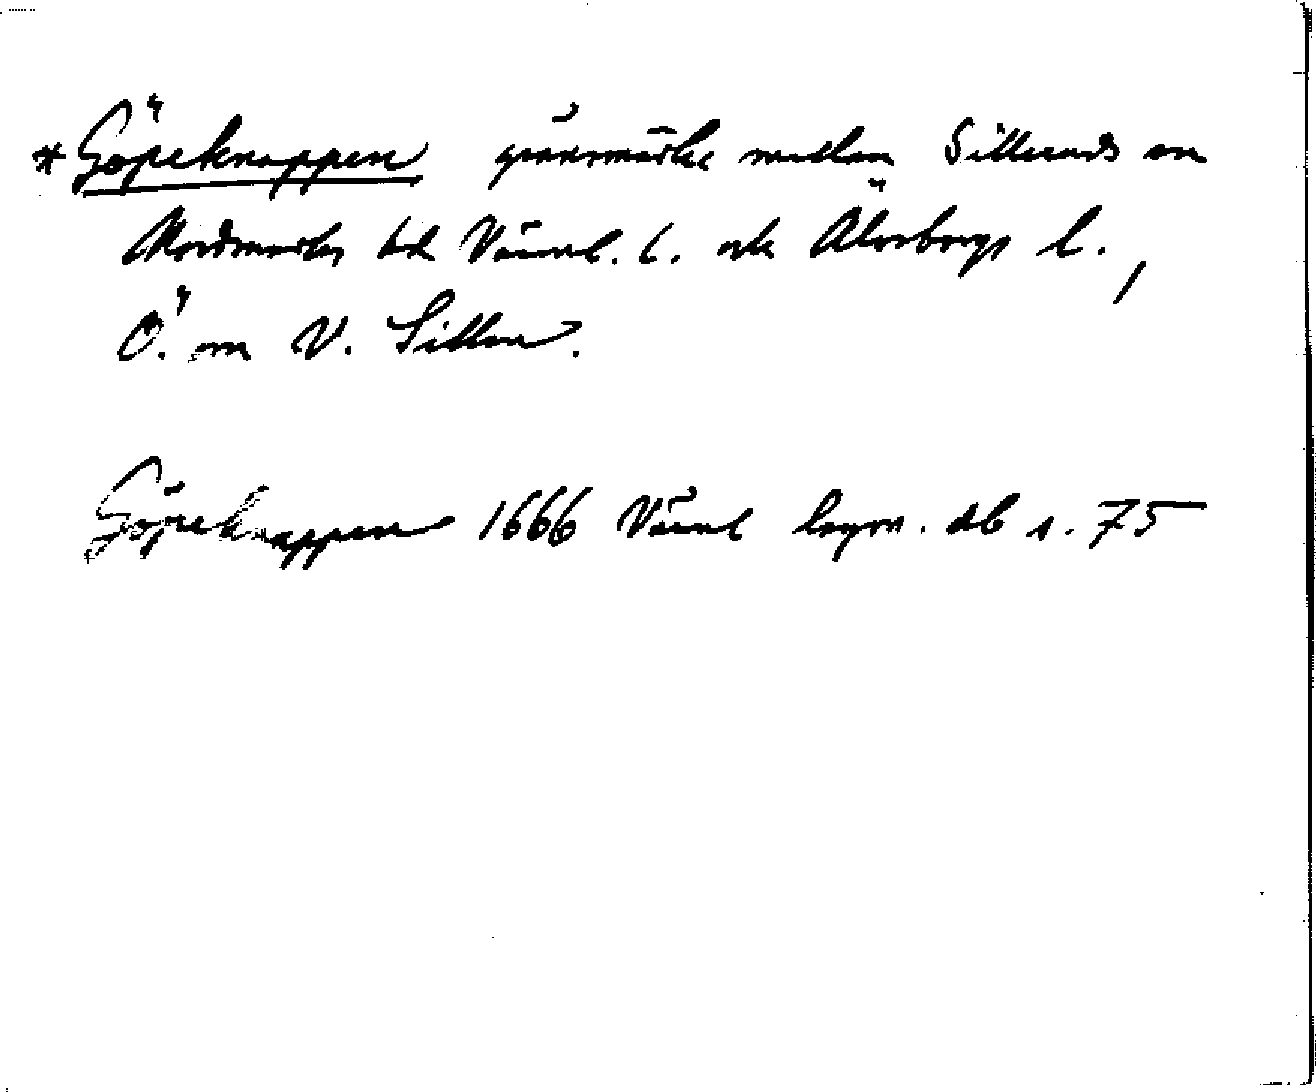 *Göpeknappen gränsmärke mellan Silleruds sn
Nordmarks hd Värml. l. och Älvsborgs l.,
Ö. om V. Sillen.
Göpeknappen 1666 Värml lagm. db s. 75